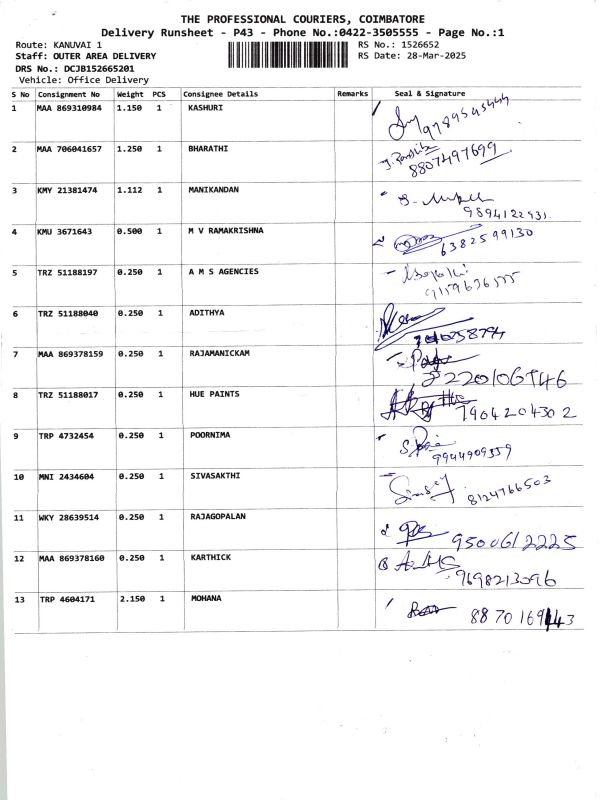 THE PROFESSIONAL COURIERS, COIMBATORE
Delivery Runsheet - P43 - Phone No.:0422-3505555 - Page No.:1
Route: KANUVAI 1 RS No.: 1526652
Staff: OUTER AREA DELIVERY RS Date: 28-Mar-2025
DRS No.: DCJB152665201
Vehicle: Office Delivery
S No Consignment No Weight PCS Consignee Details Remarks Seal & Signature
1 MAA 869310984 1.150 1 KASHURI
2 MAA 706041657 1.250 1 BHARATHI 8807497699
3 KMY 21381474 1.112 1 MANIKANDAN 9894122931
4 KMU 3671643 0.500 1 M V RAMAKRISHNA 6382599130
5 TRZ 51188197 0.250 1 A M S AGENCIES
6 TRZ 51188040 0.250 1 ADITHYA
7 MAA 869378159 0.250 1 RAJAMANICKAM
8 TRZ 51188017 0.250 1 HUE PAINTS 7904204302
9 TRP 4732454 0.250 1 POORNIMA 9944909359
10 MNI 2434604 0.250 1 SIVASAKTHI 8124766503
11 WKY 28639514 0.250 1 RAJAGOPALAN 9500612225
12 MAA 869378160 0.250 1 KARTHICK 9698213096
13 TRP 4604171 2.150 1 MOHANA